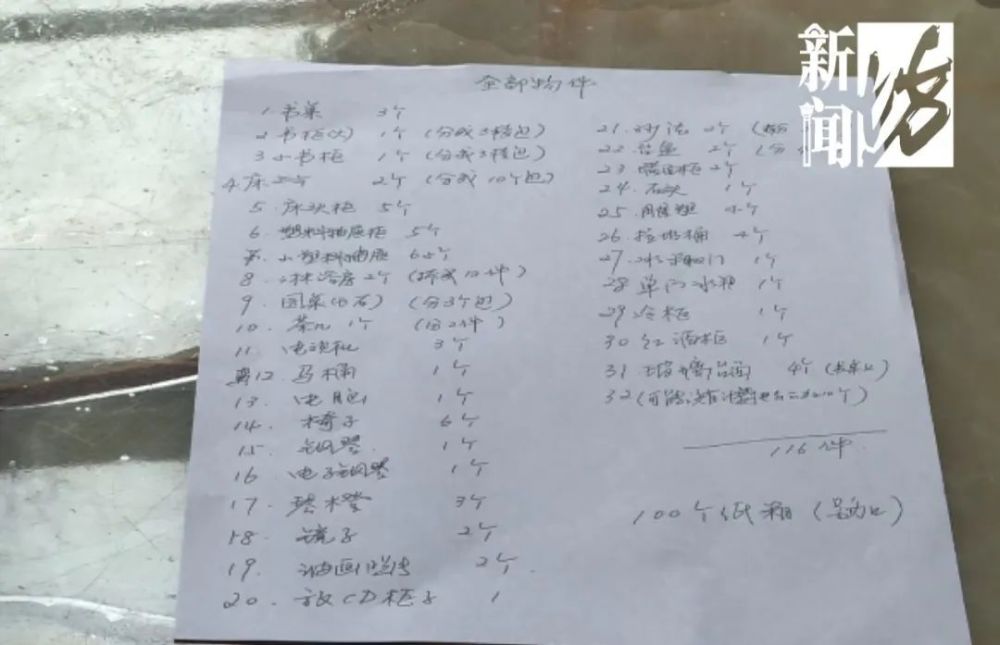 新闻坊
全部物件
1. 书桌 3个
2. 书柜(大) 1个 (分成3棵包)
3 小书柜 1个 (分成3棵包)
4. 床 2个 (分成10个包)
5. 床头柜 5个
6. 塑料抽屉柜 5个
小塑料抽屉 6个
8. 淋浴房 2个 (拆成12件)
9. 圆桌(石) (分3个包)
10. 茶几 1个 (分2件)
11. 电视机 3个
12. 马桶 1个
13. 电脑 1个
14. 椅子 6个
15. 钢琴 1个
16 电子钢琴 1个
17. 琴木凳 3个
18. 镜子 2个
19. 油画 2个
20. 放CD柜子 1
21. 沙发 2个
22. 2个
23 柜 2个
24. 石头 1个
25.
26. 垃圾桶 4个
27. 1个
28 单门冰箱 1个
29 冷柜 1个
30 红酒柜 1个
31 玻璃台面 4个
32
116件
100个纸箱